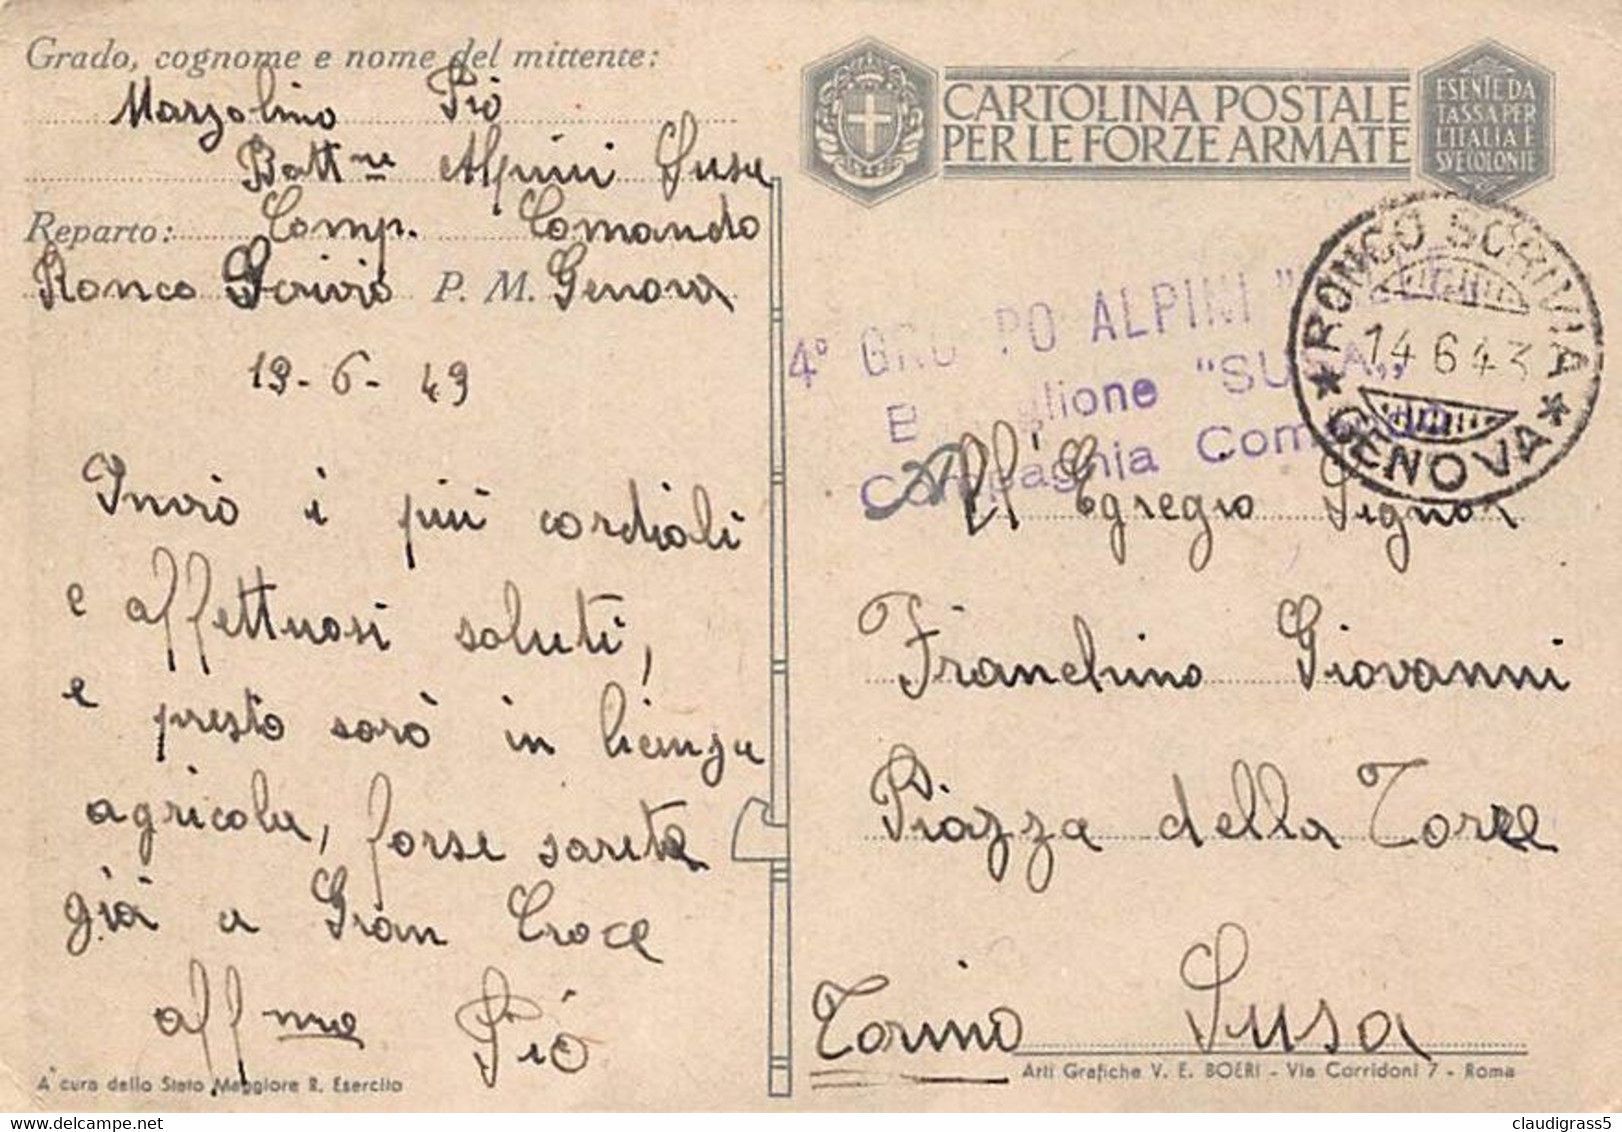 Grado, cognome e nome del mittente:
Marzolino Pió
Battne Alpini Susa
Reparto: Comp. Comando
Ronco Scrivio P. M. Genova
13-6-43
Invió i più cordiali
e affettuosi saluti,
e presto sarò in licenza
agricola, forse sarete
già a Gran Croce
affmo Pió
A cura dello Stato Maggiore R. Esercito
CARTOLINA POSTALE
PER LE FORZE ARMATE
ESENTE DA
TASSA PER
L'ITALIA E
SUE COLONIE
RONCO SCRIVIA
14 6 43
GENOVA
4° GRUPPO ALPINI "
Battaglione "SUSA"
Compagnia Comando
All' Egregio Signor
Franchino Giovanni
Piazza della Torre
Torino Susa
Arti Grafiche V. E. BOERI - Via Corridoni 7 - Roma
claudigrass5